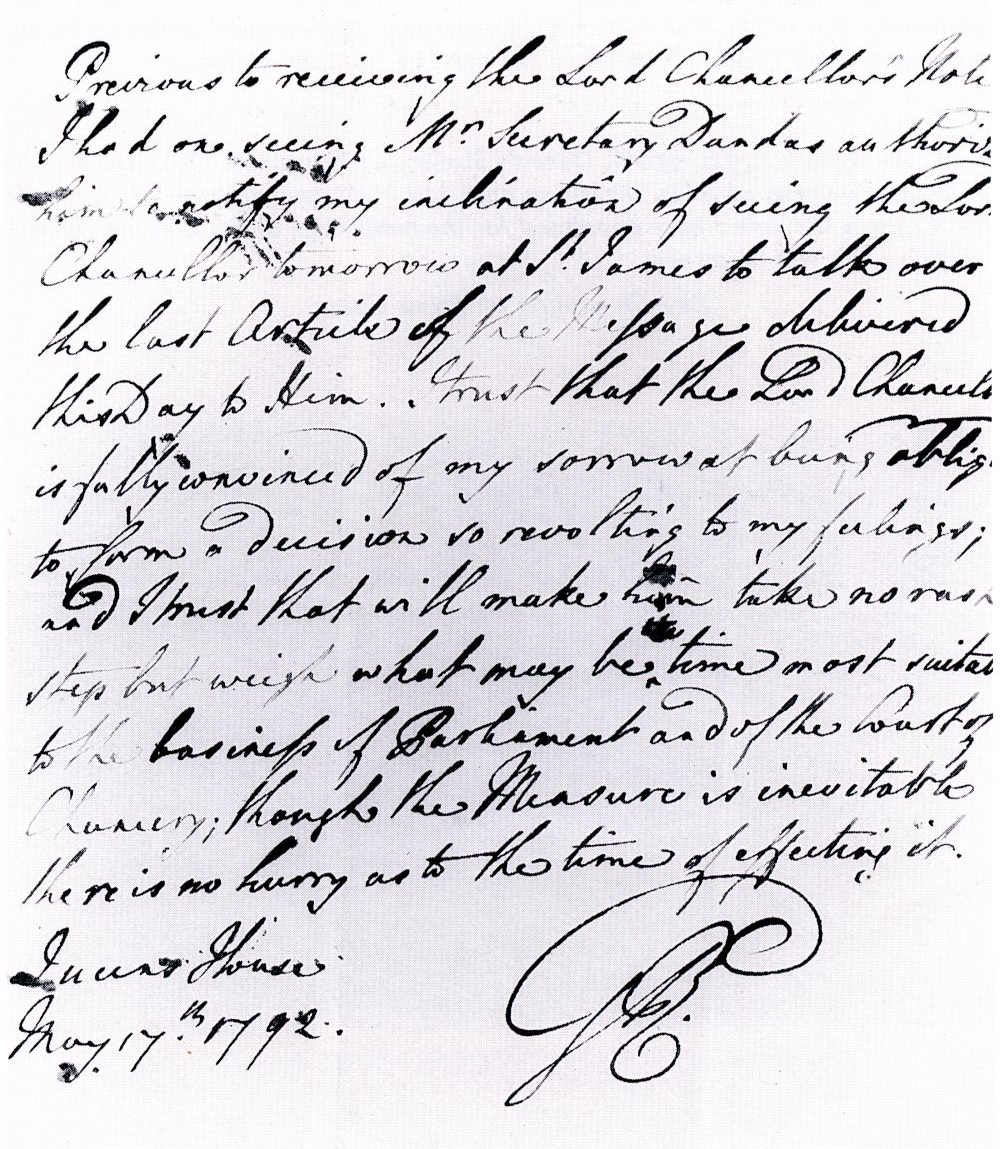 Previous to receiving the Lord Chancellor's Note
I had on seeing Mr. Secretary Dundas authoriz
him to notify my inclination of seeing the Lor
Chancellor tomorrow at St. James to talk over
the last Article of the Message delivered
this Day to Him. I trust that the Lord Chancell
is fully convinced of my sorrow at being oblig
to form a decision so revolting to my feelings;
and I trust that will make him take no rash
step but weigh what may be time most suitab
to the business of Parliament and of the Court of
Chancery; though the Measure is inevitable
there is no hurry as to the time of effecting it.
Queens House
May 17th. 1792.
GR.